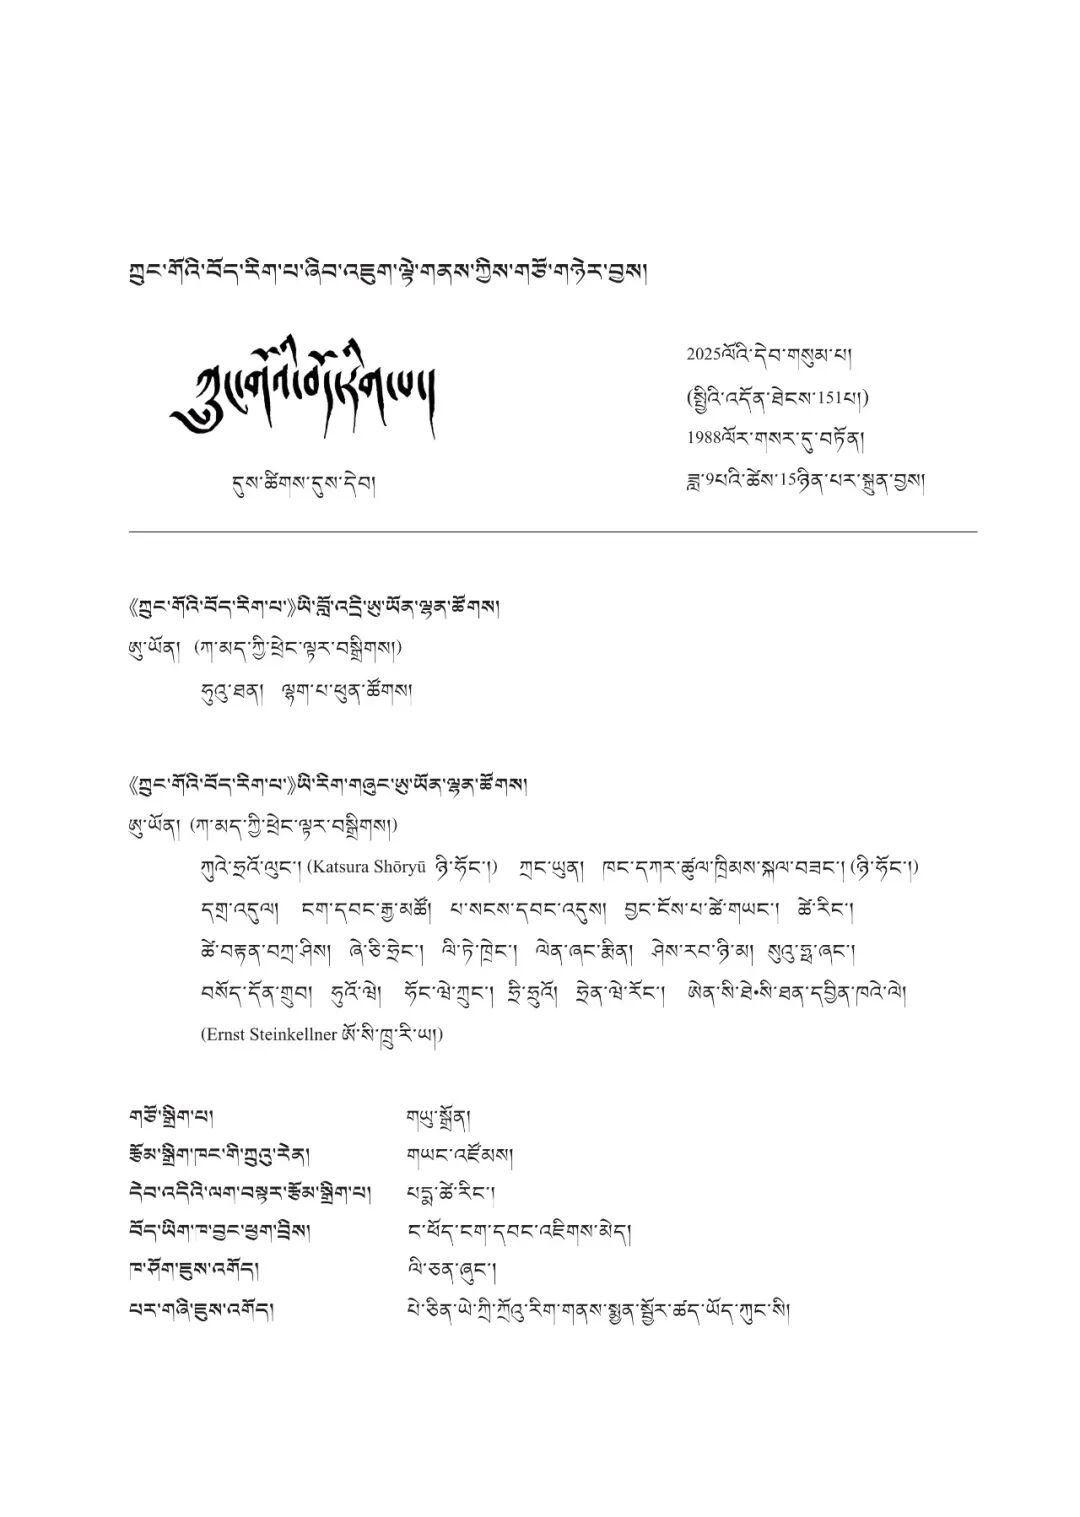 ཀྲུང་གོའི་བོད་རིག་པ་ཞིབ་འཇུག་ལྟེ་གནས་ཀྱིས་གཙོ་གཉེར་བྱས།
ཀྲུང་གོའི་བོད་རིག་པ།
དུས་ཚིགས་དུས་དེབ།
2025ལོའི་དེབ་གསུམ་པ།
(སྤྱིའི་འདོན་ཐེངས་151པ།)
1988ལོར་གསར་དུ་བཏོན།
ཟླ་9པའི་ཚེས་15ཉིན་པར་སྐྲུན་བྱས།
《ཀྲུང་གོའི་བོད་རིག་པ་》ཡི་བློ་འདྲི་ཨུ་ཡོན་ལྷན་ཚོགས།
ཨུ་ཡོན། (ཀ་མད་ཀྱི་ཕྲེང་ལྟར་བསྒྲིགས།)
ཧུའུ་ཐན། ལྷག་པ་ཕུན་ཚོགས།
《ཀྲུང་གོའི་བོད་རིག་པ་》ཡི་རིག་གཞུང་ཨུ་ཡོན་ལྷན་ཚོགས།
ཨུ་ཡོན། (ཀ་མད་ཀྱི་ཕྲེང་ལྟར་བསྒྲིགས།)
ཀུའེ་ཧྲའོ་ལུང་། (Katsura Shōryū ཉི་ཧོང་།) ཀྲང་ཡུན། ཁང་དཀར་ཚུལ་ཁྲིམས་སྐལ་བཟང་། (ཉི་ཧོང་།)
དགྲ་འདུལ། ངག་དབང་རྒྱ་མཚོ། པ་སངས་དབང་འདུས། བྱང་ངོས་པ་ཚེ་གཡང་། ཚེ་རིང་།
ཚེ་བརྟན་བཀྲ་ཤིས། ཞེ་ཅི་ཧྲེང་། ལི་ཏེ་ཁྲེང་། ལེན་ཞང་རྨིན། ཤེས་རབ་ཉི་མ། སུའུ་ཧྥ་ཞང་།
བསོད་དོན་གྲུབ། ཧུའོ་ཝེ། ཧོང་ཝེ་ཀྲུང་། ཧྲི་ཧྲུའོ། ཧྲེན་ཝེ་རོང་། ཨེན་སི་ཐེ་སི་ཐན་དབྱིན་ཁའེ་ལེ།
(Ernst Steinkellner ཨོ་སི་ཁྲུ་རི་ཡ།)
གཙོ་སྒྲིག་པ། གཡུ་སྒྲོན།
རྩོམ་སྒྲིག་ཁང་གི་ཀྲུའུ་རེན། གཡང་འཛོམས།
དེབ་འདིའི་ལག་བསྟར་རྩོམ་སྒྲིག་པ། པདྨ་ཚེ་རིང་།
བོད་ཡིག་ཁ་བྱང་ཕྱག་བྲིས། ང་ཕོད་ངག་དབང་འཇིགས་མེད།
ཁ་ཤོག་ཇུས་འགོད། ལི་ཅན་ཞུང་།
པར་གཞི་ཇུས་འགོད། པེ་ཅིན་ཡེ་ཀྲི་ཀྲོའུ་རིག་གནས་སྨྱན་སྦྱོར་ཚད་ཡོད་ཀུང་སི།